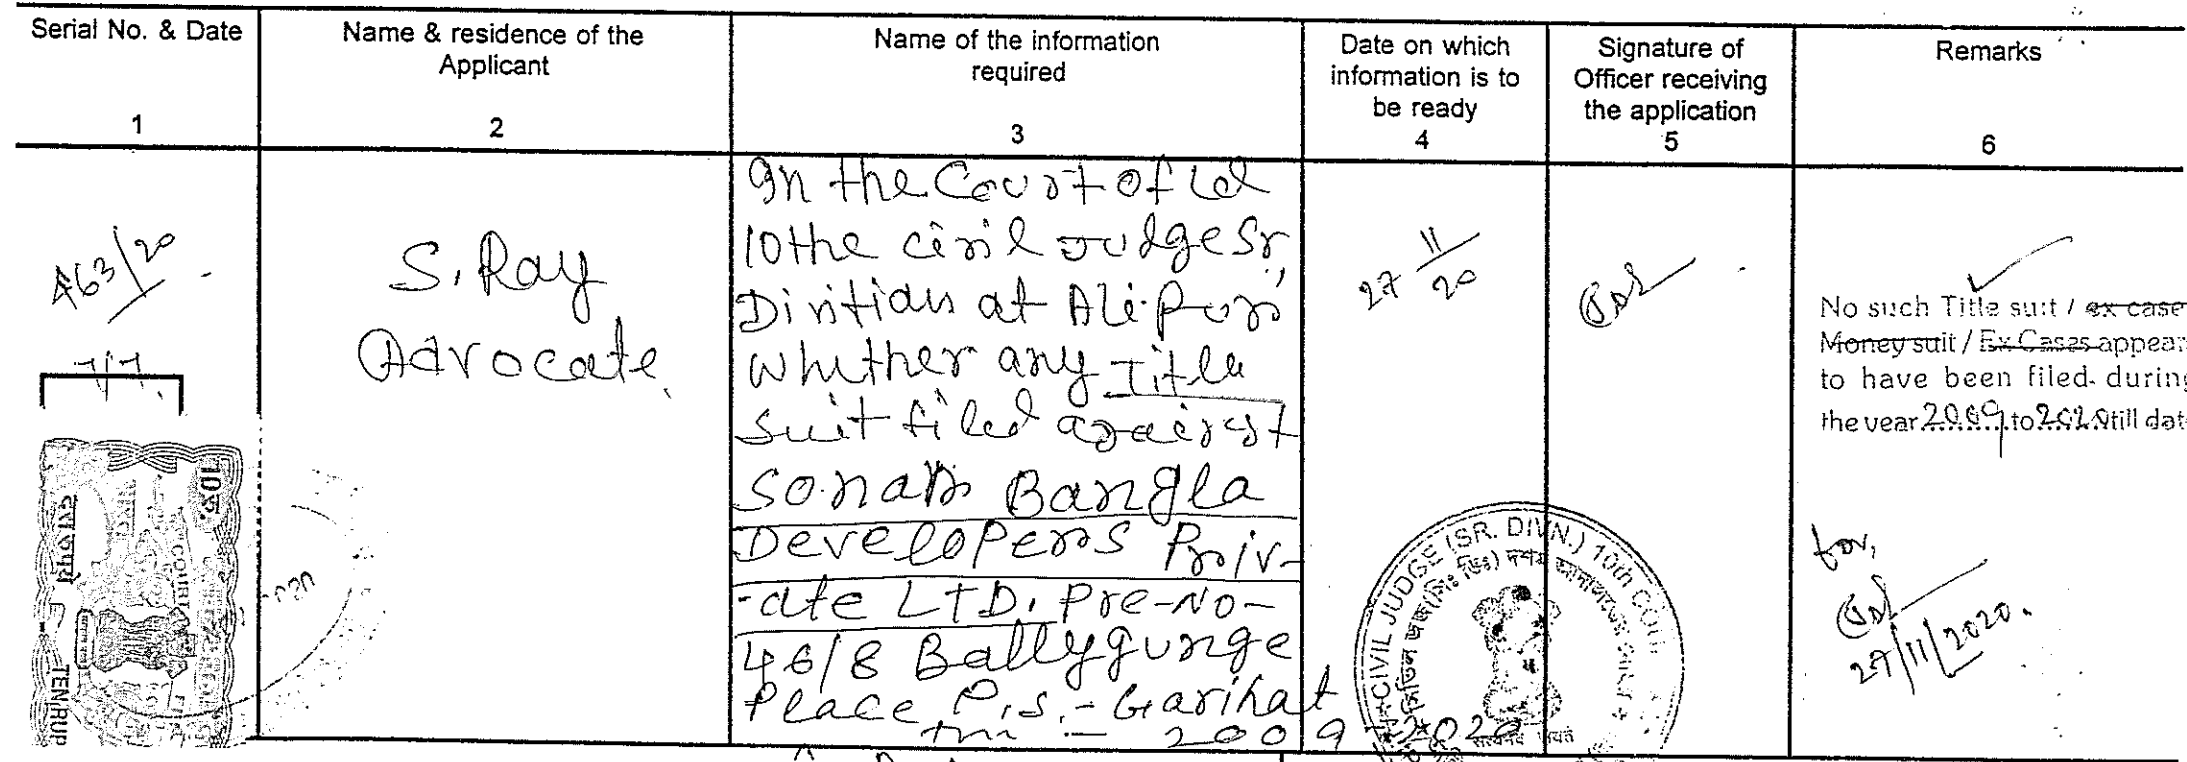 Serial No. & Date
1
Name & residence of the
Applicant
2
Name of the information
required
3
Date on which
information is to
be ready
4
Signature of
Officer receiving
the application
5
Remarks
6
463/20
7/7.
S. Ray
Advocate.
In the Court of Ld
10the civil Judge Sr,
Divitian at Alipur
whether any Title
suit filed against
Sonar Bangla
Developers Priv-
-ate LTD. Pre-No-
46/8 Ballygunge
Place P.S.- Garihat
2009 - 2020
27 11/20
No such Title suit / ex case
Money suit / Ex Cases appear
to have been filed during
the year 2009 to 2020 till date
for,
27/11/2020.
CIVIL JUDGE (SR. DIVN.) 10th COURT
10रु.
COURT
TEN RUP